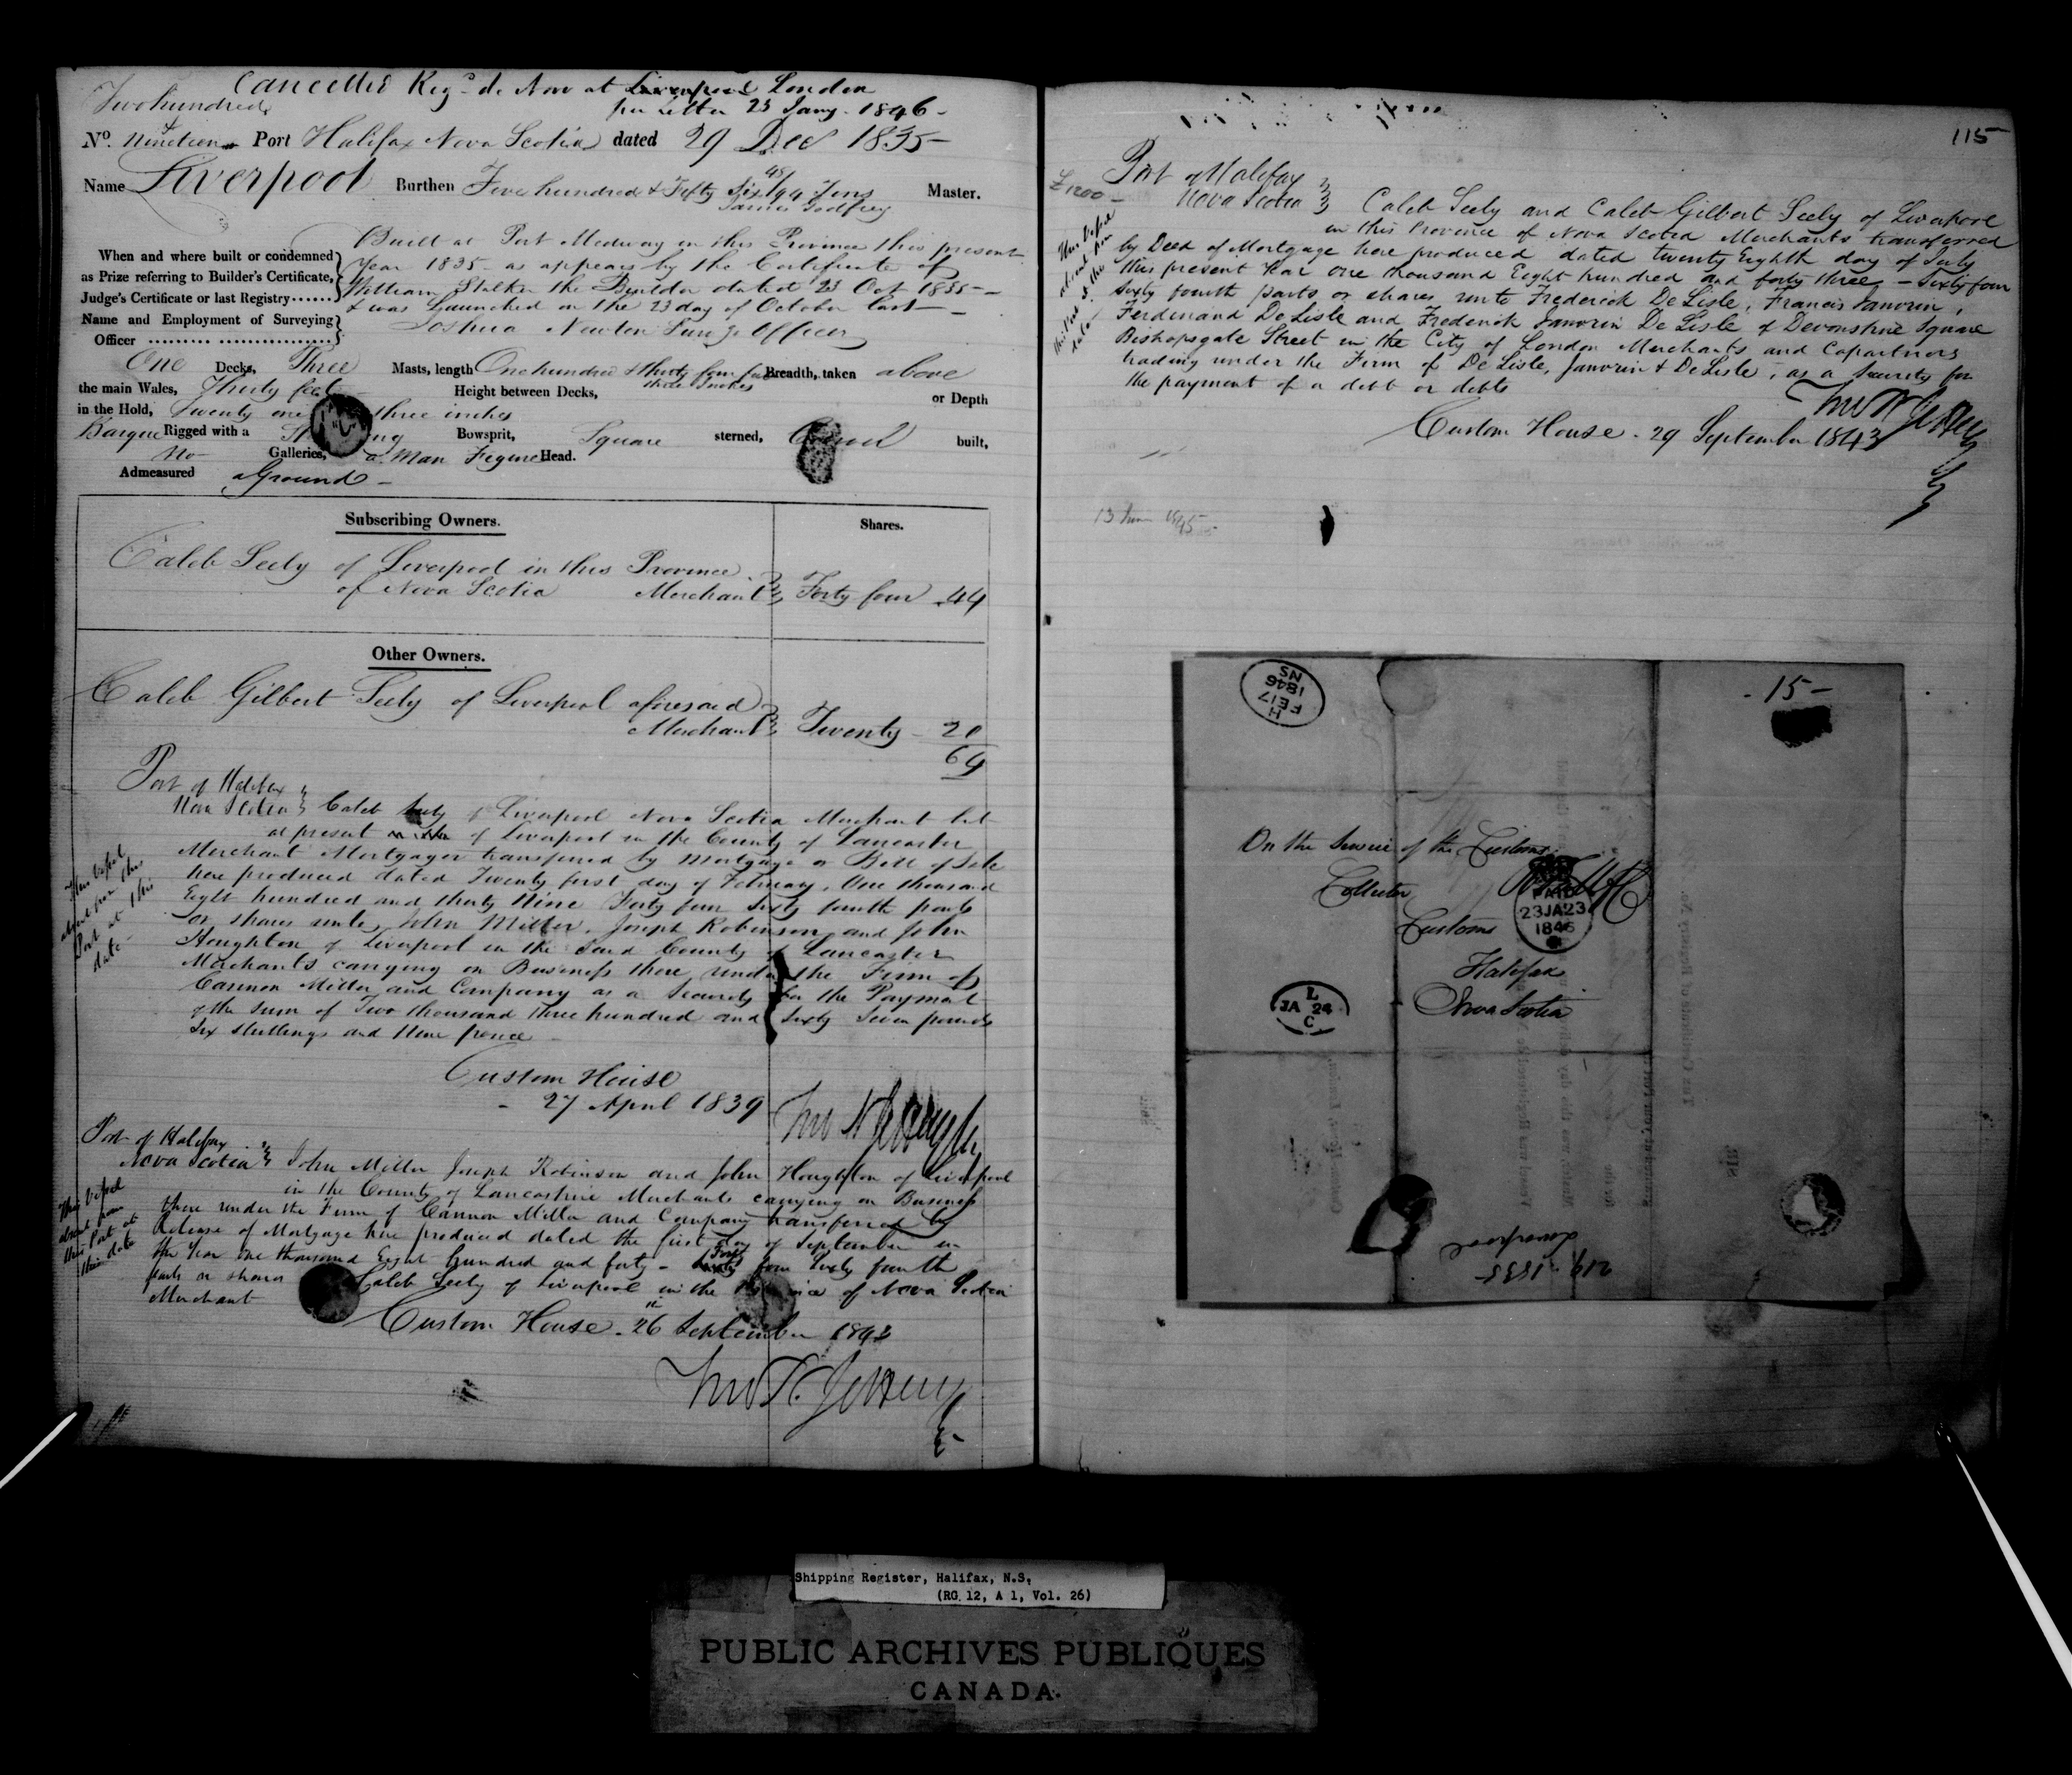 Cancelled Reg. de Novo at Liverpool London
per Letter 23 Jany. 1846 -
Two hundred &
No. Nineteen Port Halifax Nova Scotia dated 29 Dec 1835 -
Name Liverpool Burthen Five hundred & Fifty Six 48/94 Tons Master.
James Godfrey
When and where built or condemned
as Prize referring to Builder's Certificate,
Judge's Certificate or last Registry......
Built at Port Medway in this Province this present
Year 1835 - as appears by the Certificate of
William Stalker the Builder dated 23 Oct 1835 -
& was Launched on the 23 day of October last -
Name and Employment of Surveying
Officer
Joshua Newton Officer
One Decks, Three Masts, length One hundred & thirty four feet three inches Breadth, taken above
the main Wales, Thirty feet Height between Decks, or Depth
in the Hold, Twenty one three inches
Barque Rigged with a Bowsprit, Square sterned, built,
No Galleries, a Man Figure Head.
Admeasured aGround -
Subscribing Owners. Shares.
Caleb Seely of Liverpool in this Province
of Nova Scotia Merchant Forty four 44
Other Owners.
Caleb Gilbert Seely of Liverpool aforesaid
Merchant Twenty - 20
64
Port of Halifax
Nova Scotia Caleb Seely of Liverpool Nova Scotia Merchant but
at present of Liverpool in the County of Lancaster
Merchant Mortgager transferred by Mortgage or Bill of Sale
here produced dated Twenty first day of February, One thousand
Eight hundred and thirty Nine Forty four Sixty fourth parts
or shares unto John Miller, Joseph Robinson and John
Houghton of Liverpool in the said County of Lancaster
Merchants carrying on Business there under the Firm of
Cannon Miller and Company as a Security for the Payment
of the sum of Two thousand three hundred and sixty Seven pounds
Six shillings and Nine pence
This Vessel
absent from this
Port at this
date -
Custom House
- 27 April 1839
Port of Halifax
Nova Scotia John Miller Joseph Robinson and John Houghton of Liverpool
in the County of Lancashire Merchants carrying on Business
there under the Firm of Cannon Miller and Company transferred by
Release of Mortgage here produced dated the first day of September in
the Year one thousand Eight hundred and forty - Forty four Sixty fourth
parts or shares Caleb Seely of Liverpool in the of Nova Scotia
Merchant
This Vessel
absent from
this Port at
this date
Custom House - 26th September 1843
Thos N. Jeffery
115
£1200 -
Port of Halifax
Nova Scotia Caleb Seely and Caleb Gilbert Seely of Liverpool
in this Province of Nova Scotia Merchants transferred
by Deed of Mortgage here produced dated twenty Eighth day of July
this present Year One thousand Eight hundred and forty three - Sixty four
sixty fourth parts or shares unto Frederick De Lisle, Francis Janvrin,
Ferdinand De Lisle and Frederick Janvrin De Lisle of Devonshire Square
Bishopsgate Street in the City of London Merchants and Copartners
trading under the Firm of De Lisle, Janvrin & De Lisle, as a Security for
the payment of a debt or debts
This Vessel
absent from
this Port at the
date
Thos N Jeffery
Custom House - 29 September 1843
13 June 1845 -
H
FE 17
1846
NS
- 15 -
On the Service of the Customs
Collector
Customs
Halifax
Nova Scotia
PAID
23JA23
1846
L
JA 24
C
219. 1835
Liverpool
Shipping Register, Halifax, N.S.
(RG 12, A 1, Vol. 26)
PUBLIC ARCHIVES PUBLIQUES
CANADA.